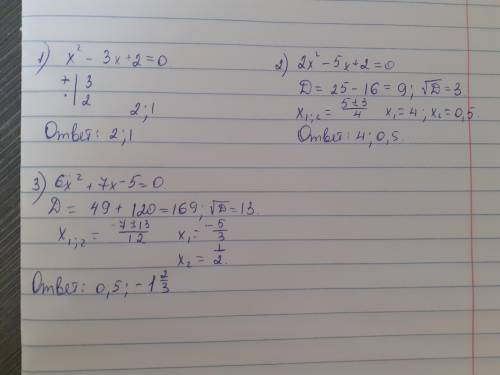 1) x² - 3x+2=0
+ | 3
· | 2
2;1
Ответ: 2;1
2) 2x² - 5x+2=0
D = 25 - 16 = 9; √D = 3
x₁;₂ = (5±3)/4 x₁ = 4; x₂ = 0,5.
Ответ: 4; 0,5.
3) 6x² + 7x - 5 = 0.
D = 49 + 120 = 169; √D = 13.
x₁;₂ = (-7±13)/12 x₁ = -5/3
x₂ = 1/2.
Ответ: 0,5; -1 2/3